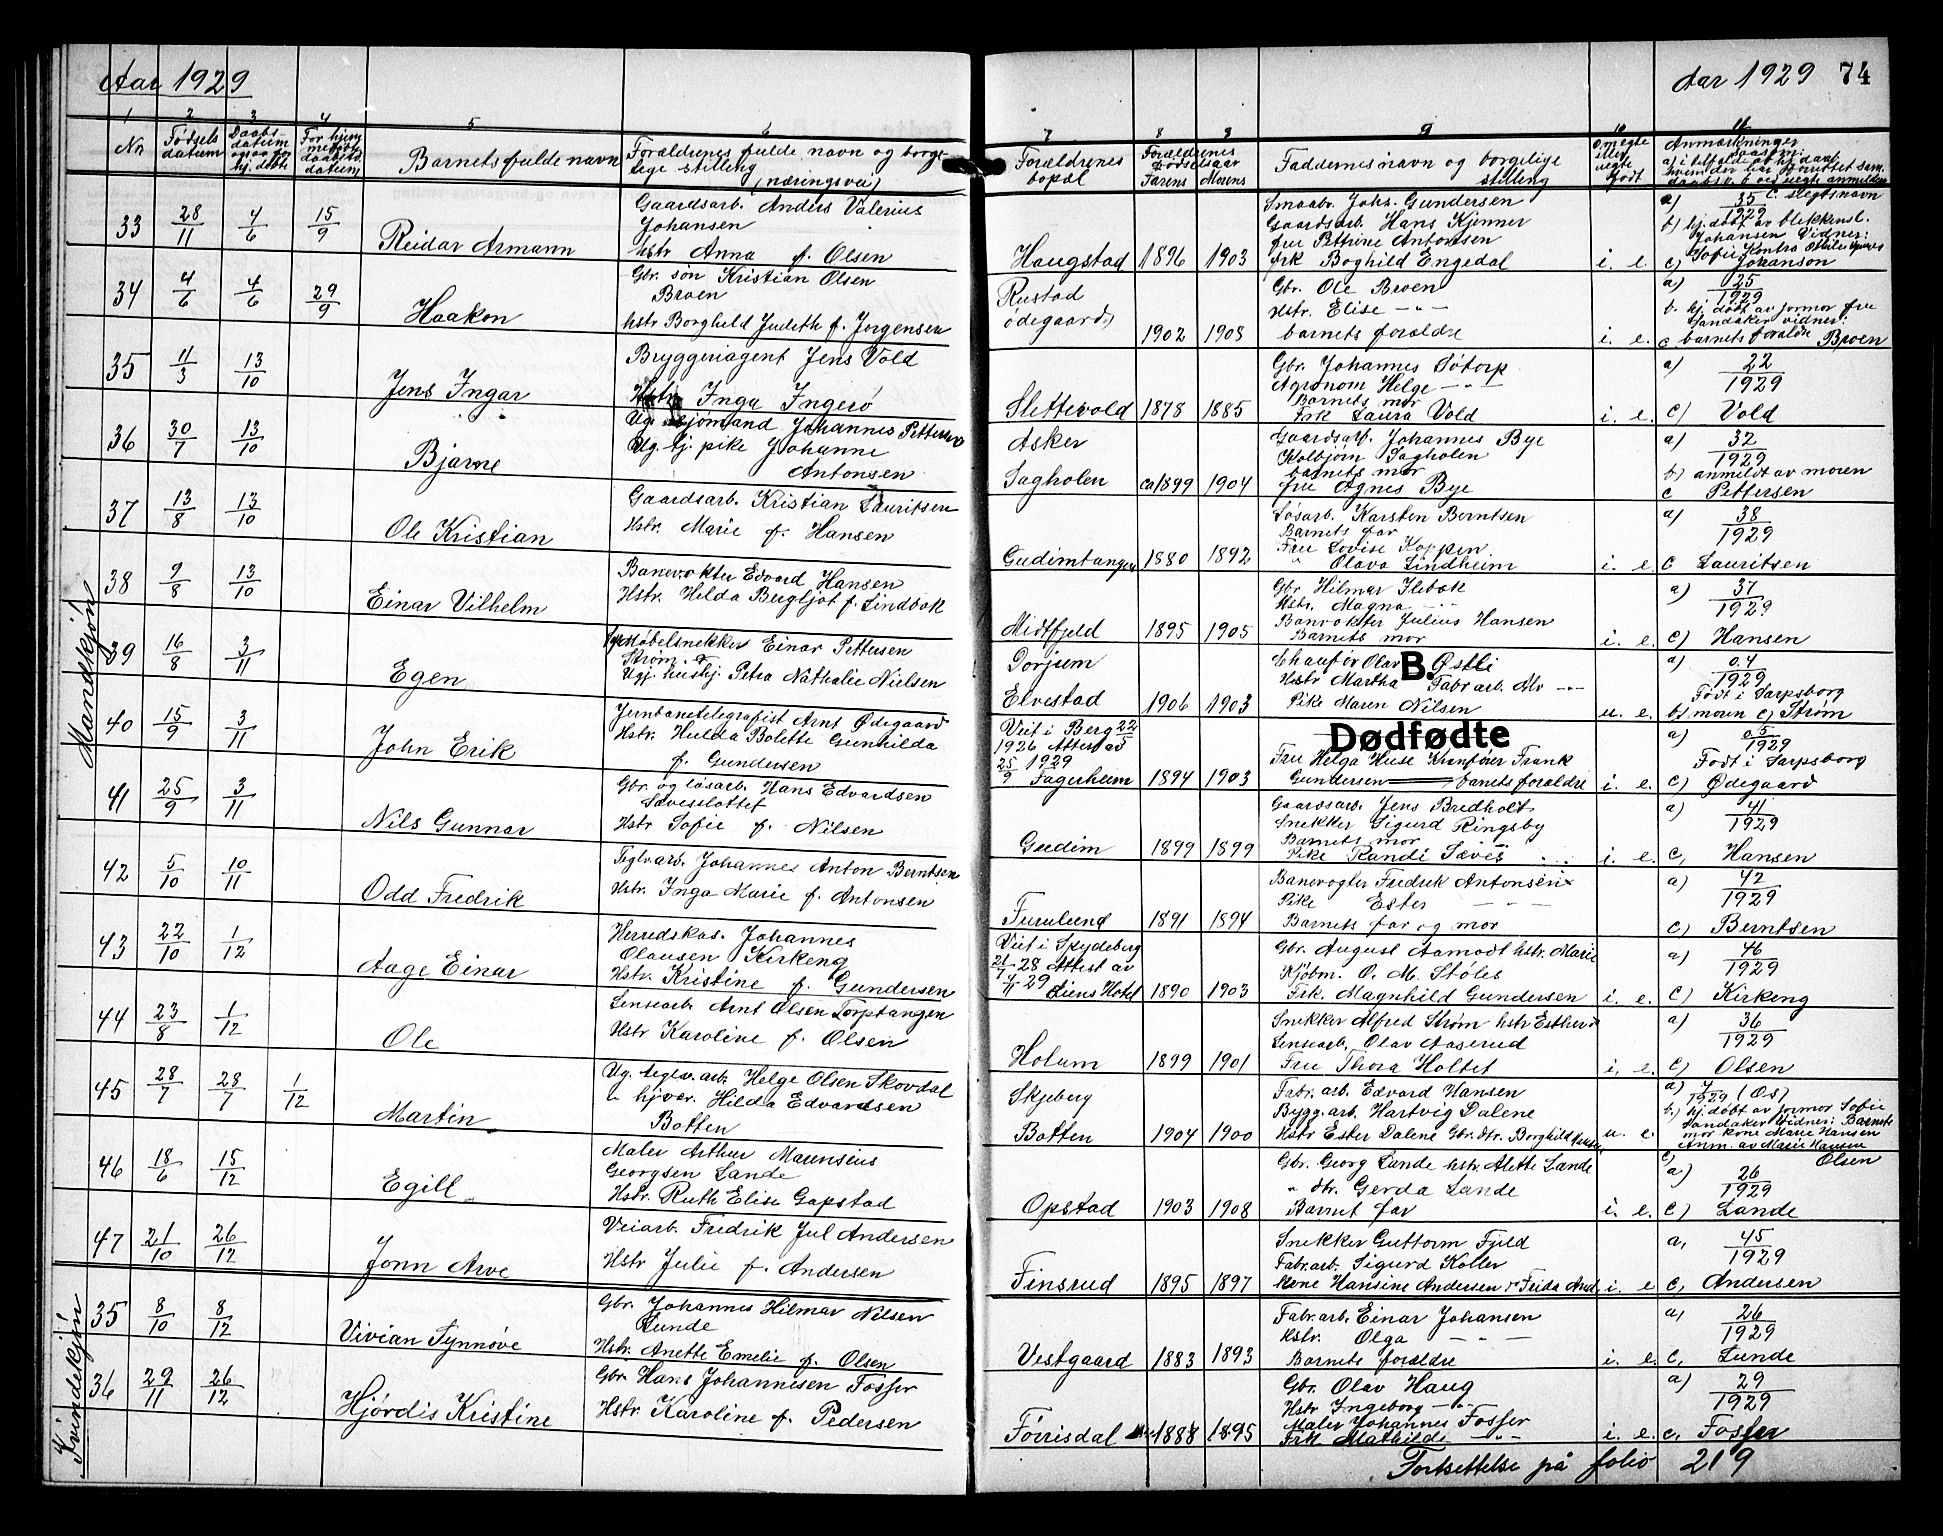 Aar 1929
Aar 1929 74
1 2 3 4 5 6
Nr Fødsels datum Daabs- datum Barnets fulde navn Forældrenes fulde navn og borgelige stilling (næringsvei)
7 8 9 9 10 11
Forældrenes bopæl Forældrenes fødselsaar Farens Morens Faddernes navn og borgelige stilling Anmærkninger
Mandskjøn
33 28/11 4/6 15/9 Reidar Armann
Gaardsarb. Anders Valerius
Johansen
hstr Anna f. Olsen
Haugstad 1896 1903
Smaabr. Johs. Gundersen
Gaardsarb. Hans Kjenner
fru Pettrine Antonsen
frk Boghild Engedal
i. e.
a) 35/1929 c slegtsnavn
b) hj. døbt av blikkensl.
Johansen Vidner:
c) Johanson
34 4/6 4/6 29/9 Haakon
Gbr. søn Kristian Olsen
Broen
hstr Borghild Judith f. Jørgensen
Rustad
ødegaard
1902 1903
Gbr. Ole Broen
Hstr. Elise -"-
barnets forældre
i. e.
a) 25/1929
b. hj. døbt av jormor fru
Sandaker vidner:
c barnets forældre Broen
35 11/3 13/10 Jens Ingar
Bryggeriagent Jens Vold
Hstr Inga Ingerø
Slettevold 1878 1885
Gbr. Johannes Søtorp
Agronom Helge -"-
Barnets mor
Frk Laura Vold
i. e.
a) 22/1929
c) Vold
36 30/7 13/10 Bjarne
Ug. sjømand Johannes Pettersen
Ug. tj. pike Johanne
Antonsen
Asker
Sagholen ca 1899 1904
Gaardsarb. Johannes Bye
Kolbjørn Sagholen
barnets mor
fru Agnes Bye
a) 32/1929
b) anmeldt av moren
c Pettersen
37 13/8 13/10 Ole Kristian
Gaardsarb. Kristian Lauritsen
Hstr. Marie f. Hansen
Gudimtangen 1880 1892
Løsarb. Karsten Berntsen
Barnets far
Fru Lovise Koppen
" Olava Lindheim
i. e.
a) 38/1929
c Lauritsen
38 9/8 13/10 Einar Vilhelm
Banevokter Edvard Hansen
Hstr. Hilda Bergljot f. Lindbok
Midtfjeld 1895 1905
Gbr Hilmar Ilebæk
Hstr. Magna -"-
Banvokter Julius Hansen
Barnets mor
i. e.
a) 37/1929
c) Hansen
39 16/8 3/11 Egen
Møbelsnekker Einar Pettersen
Strøm. og
Ugj. hushj. Petra Nathalie Nielsen
Dorjum
Elvestad 1906 1903
Chaufør Olav Østli
Hstr Martha Fabr. arb. Mr -"-
Pike Maren Nilsen
B.
u. e.
a) 04/1929
Født i Sarpsborg
b) moren c) Strøm
40 15/9 3/11 John Erik
Jernbanetelegrafist Arnt Ødegaard
Hstr. Hulda Bolette Gunhilda
f. Gundersen
Viet i Berg 22/5
1926 Attest av
25/9 1929
Fagerheim 1894 1903
Dødfødte
Fru Helga Huse Kranfører Frank
Gundersen barnets forældre
i. e.
a) 05/1929
Født i Sarpsborg
c) Ødegaard
41 25/9 3/11 Nils Gunnar
Gbr. og løsarb. Hans Edvardsen
Sæveslottet
Hstr Sofie f. Nilsen
Gudim 1899 1899
Gaardsarb. Jens Bredholt
Snekker Sigurd Ringsby
Barnets mor
Pike Randi Sæves
i. e.
a) 41/1929
c, Hansen
42 5/10 10/11 Odd Fredrik
Teglv.arb. Johannes Anton Berntsen
Hstr. Inga Marie f. Antonsen
Furulund 1891 1894
Banevogter Fredrik Antonsen
Pike Ester -"-
Barnets far og mor
a) 42/1929
c) Berntsen
43 22/10 1/12 Aage Einar
Herredskas. Johannes
Olausen Kirkeng
Hstr. Kristine f. Gundersen
Viet i Spydeberg
21/7 28 Attest av
4/11 29 Liens Hotel 1890 1903
Gbr. August Aamodt hstr. Marie
Kjøbm. O. M. Støles
Frk. Magnhild Gundersen
i. e.
a) 46/1929
c) Kirkeng
44 23/8 1/12 Ole
Lensearb. Arnt Olsen Torptangen
Hstr Karoline f. Olsen
Holum 1899 1901
Snekker Alfred Strøm hstr Esther
Lensearb. Olav Aaserud
Fru Thora Holtet
i. e.
a) 36/1929
c) Olsen
45 28/7 28/7 1/12 Martin
Ug. teglv.arb. Helge Olsen Skovdal
" hjvær. Hilda Edvardsen
Botten
Skjeberg
Botten 1904 1900
Fabr. arb. Edvard Hansen
Bygg. arb. Hartvig Dalene
Hstr Ester Dalene Gbr. dtr. Borghild
u. e.
a) 7/1929 (Os)
b.) hj. døbt av jormor Sofie
Sandaker Vidner: Barnets
mor kone Marie Hansen
Anm. av Marie Hansen
c, Olsen
46 18/6 15/12 Egill
Maler Arthur Marensius
Georgsen Lande
Hstr. Ruth Elise Gapstad
Opstad 1903 1908
Gbr. Georg Lande hstr. Alette Lande
" dtr. Gerda Lande
Barnet far
i. e.
a) 26/1929
c) Lande
47 21/10 26/12 Jonn Arve
Veiarb. Fredrik Jul Andersen
Hstr Julie f. Andersen
Finsrud 1895 1897
Snekker Guttorm Fjeld
Fabr.arb. Sigurd Koller
Kone Hansine Andersen Frida And.
i. e
a, 45/1929
c, Andersen
Kvindekjøn
35 8/10 8/12 Vivian Synnøve
Gbr. Johannes Hilmar Nilsen
Lunde
Hstr. Anette Emelie f. Olsen
Vestgaard 1883 1893
Fabr.arb. Einar Johansen
Hstr. Olga -"-
Barnets forældre
i. e.
a, 26/1929
c, Lunde
36 29/11 26/12 Hjørdis Kristine
Gbr. Hans Johannesen Fosser
Hstr. Karoline f. Pedersen
Førrisdal 1888 1895
Gbr. Olav Haug
Hstr Ingeborg -"-
Maler Johannes Fosser
Frk Mathilde -"-
i. e.
a) 29/1929
c, Fosser
Fortsettelse på folio 219